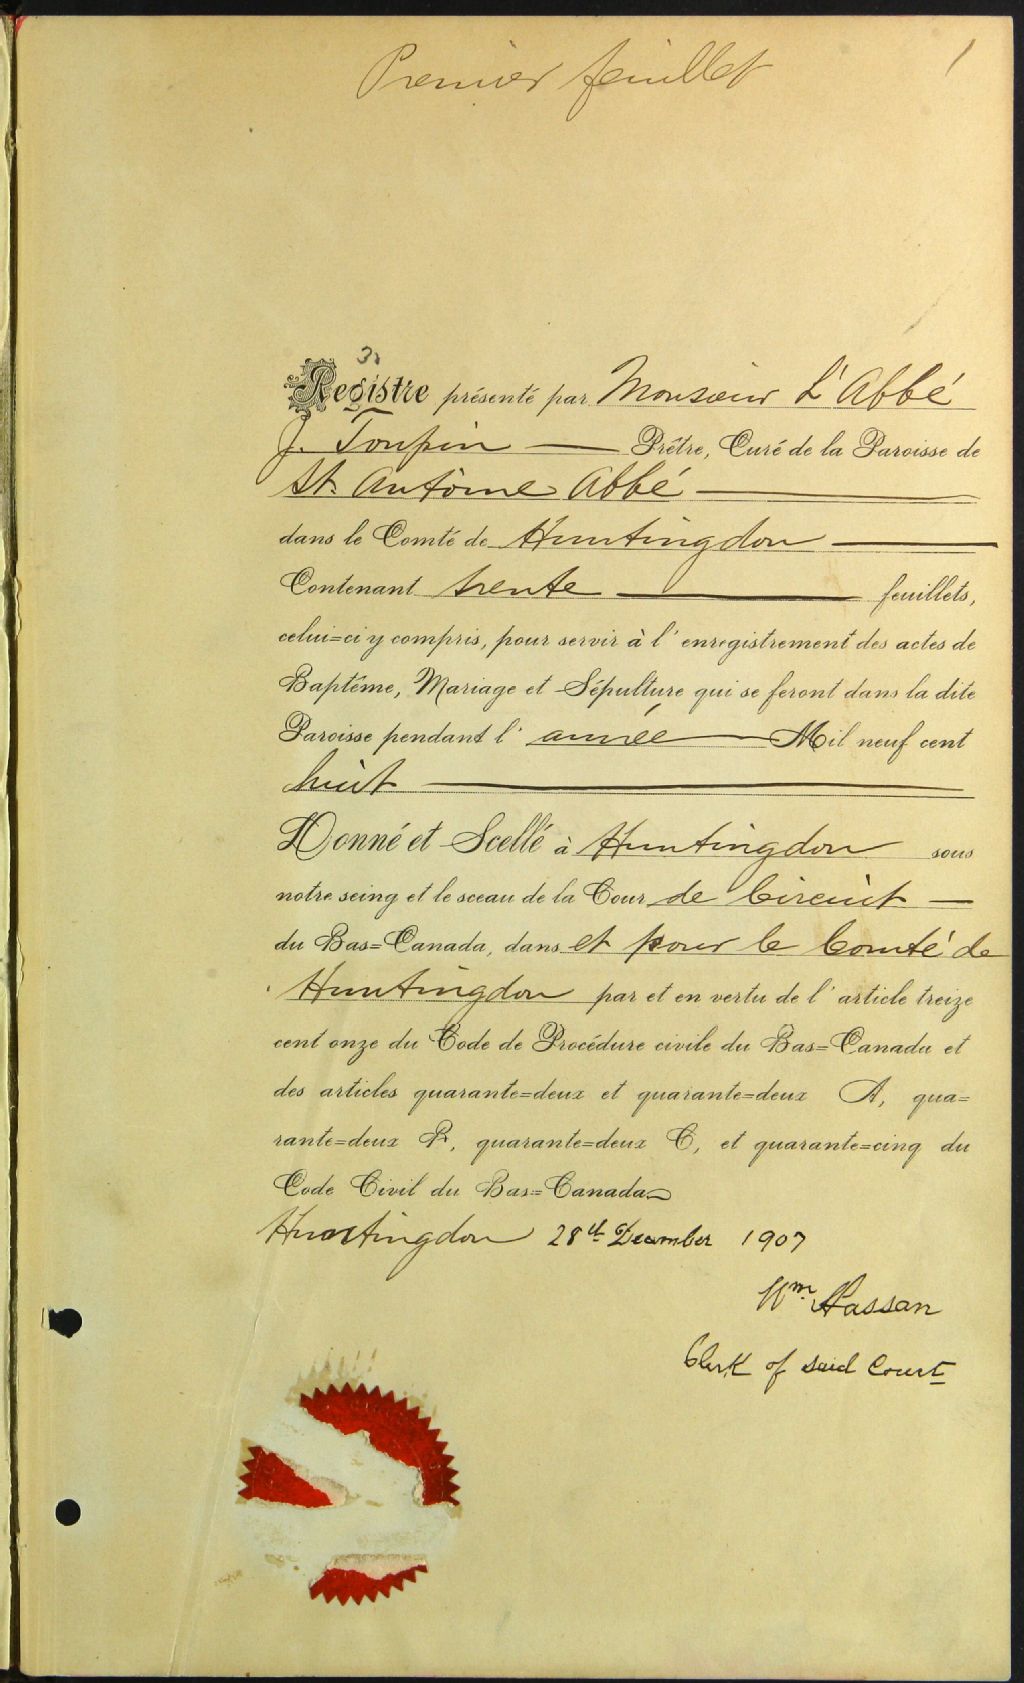 Premier feuillet
1
3
Registre présenté par Monsieur L'Abbé
J. Toupin — Prêtre, Curé de la Paroisse de
St. Antoine Abbé —
dans le Comté de Huntingdon —
Contenant trente — feuillets,
celui=ci y compris, pour servir à l'enregistrement des actes de
Baptême, Mariage et Sépulture qui se feront dans la dite
Paroisse pendant l'année — Mil neuf cent
huit —
Donné et Scellé à Huntingdon sous
notre seing et le sceau de la Cour de Circuit —
du Bas=Canada, dans et pour le Comté de
Huntingdon par et en vertu de l'article treize
cent onze du Code de Procédure civile du Bas=Canada et
des articles quarante=deux et quarante=deux A, qua=
rante=deux B, quarante=deux C, et quarante=cinq du
Code Civil du Bas=Canada
Huntingdon 28th December 1907
Wm Hassan
Clerk of said Court